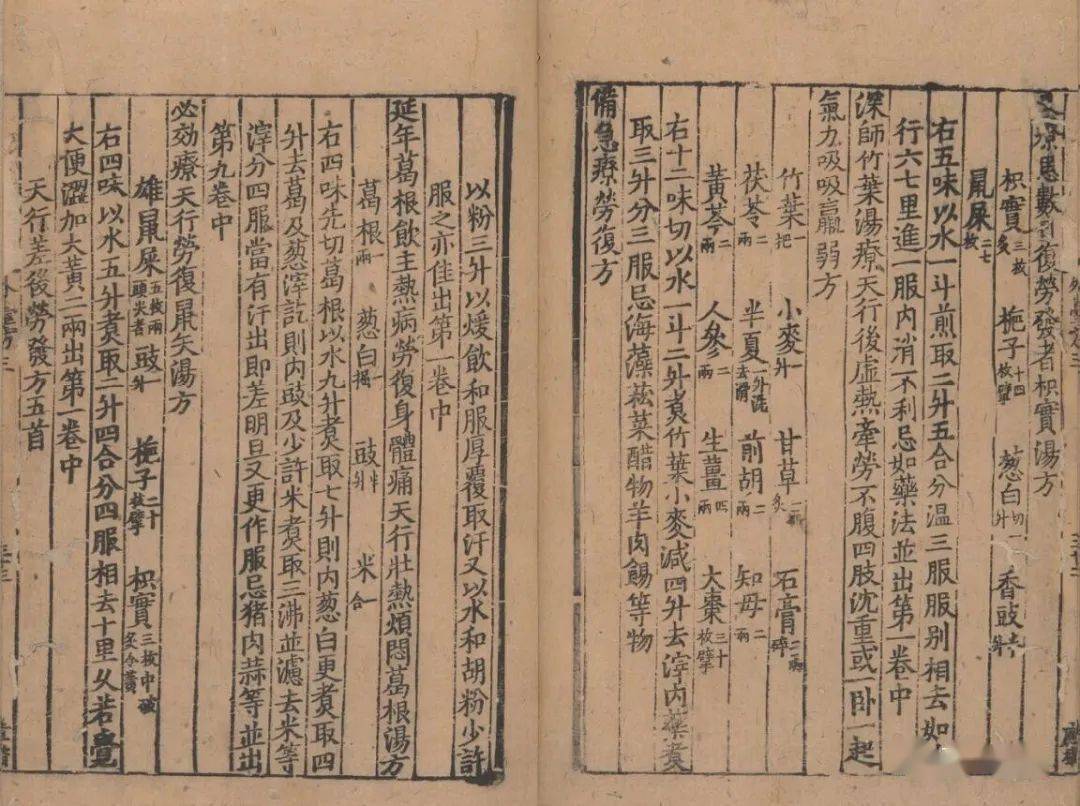 又療患數日復勞發者枳實湯方
枳實三枚炙 梔子十四枚擘 葱白切一升 香豉
鼠屎二七枚
右五味以水一斗煎取二升五合分温三服服別相去如
行六七里進一服内消不利忌如藥法並出第一卷中
深師竹葉湯療天行後虚熱牽勞不腹四肢沈重或一卧一起
氣力吸吸羸弱方
竹葉一把 小麥一升 甘草二兩炙 石膏二兩碎
茯苓二兩 半夏一升洗去滑 前胡二兩 知母二兩
黃芩二兩 人參二兩 生薑四兩 大棗三十枚擘
右十二味切以水一斗二升煑竹葉小麥減四升去滓内藥煑
取三升分三服忌海藻菘菜醋物羊肉餳等物
備急療勞復方
以粉三升以煖飲和服厚覆取汗又以水和胡粉少許
服之亦佳出第一卷中
延年葛根飲主熱病勞復身體痛天行壯熱煩悶葛根湯方
葛根一兩 葱白一握 豉半升 米一合
右四味先切葛根以水九升煑取七升則内葱白更煑取四
升去葛及葱滓訖則内豉及少許米煑取三沸並濾去米等
滓分四服當有汗出即差明旦又更作服忌猪肉蒜等並出
第九卷中
必効療天行勞復鼠矢湯方
雄鼠屎五枚兩頭尖者 豉一升 梔子二十枚擘 枳實三枚中破炙令黃
右四味以水五升煑取二升四合分四服相去十里久若覺
大便澀加大黃二兩出第一卷中
天行差後勞發方五首